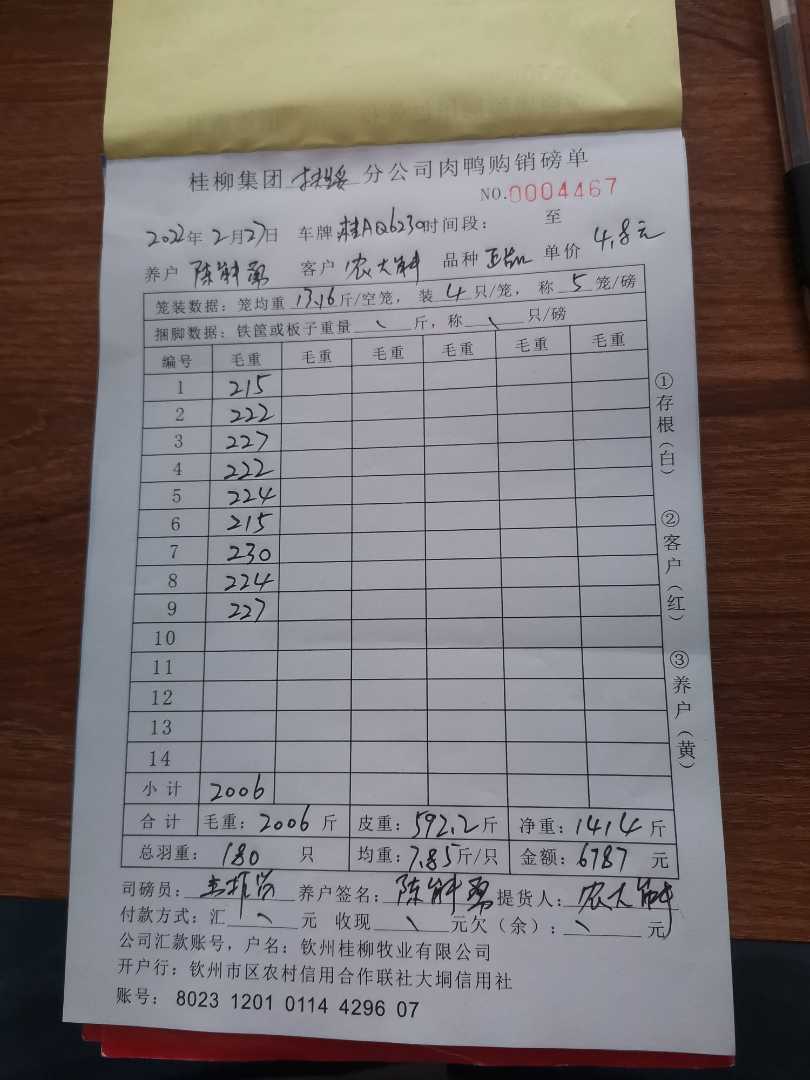 桂柳集团 扶绥 分公司肉鸭购销磅单
NO.0004467
2022年2月27日 车牌 桂AQ6230 时间段： 至
养户 陈 客户 农大 品种 单价 4.8元
笼装数据：笼均重 13.16 斤/空笼，装 4 只/笼，称 5 笼/磅
捆脚数据：铁筐或板子重量 、 斤，称 、 只/磅
编号 毛重 毛重 毛重 毛重 毛重 毛重
1 215
2 222
3 227
4 222
5 224
6 215
7 230
8 224
9 227
10
11
12
13
14
小计 2006
合计 毛重：2006 斤 皮重：592.2 斤 净重：1414 斤
总羽重：180 只 均重：7.85 斤/只 金额：6787 元
司磅员： 养户签名：陈 提货人：农大
付款方式：汇 、 元 收现 、 元欠（余）：、 元
公司汇款账号，户名：钦州桂柳牧业有限公司
开户行：钦州市区农村信用合作联社大垌信用社
账号： 8023 1201 0114 4296 07
①存根（白） ②客户（红） ③养户（黄）